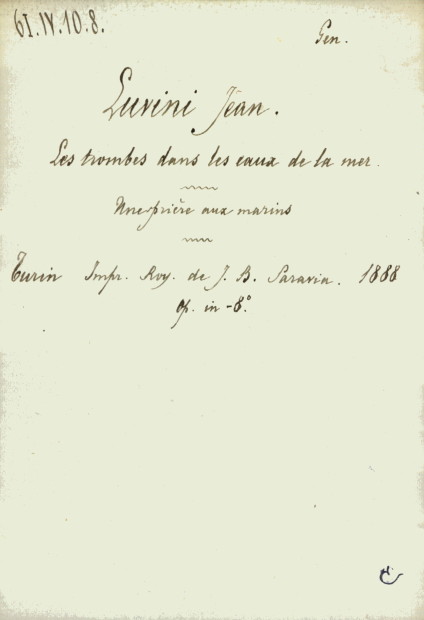 61.IV.10.8.
Gen.
Luvini Jean.
Les trombes dans les eaux de la mer.
Une prière aux marins
Turin Impr. Roy. de J. B. Paravia. 1888
op. in-8.º